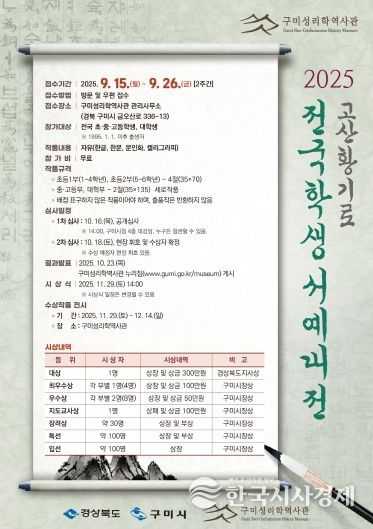 구미성리학역사관
Gumi Neo-Confucianism History Museum
2025
고산황기로
전국학생서예대전
접수기간 | 2025. 9. 15.(월) ~ 9. 26.(금) [2주간]
접수방법 | 방문 및 우편 접수
접수장소 | 구미성리학역사관 관리사무소
(경북 구미시 금오산로 336-13)
참가대상 | 전국 초·중·고등학생, 대학생
※ 1995. 1. 1. 이후 출생자
작품내용 | 자유(한글, 한문, 문인화, 캘리그라피)
참 가 비 | 무료
작품규격
초등1부(1~4학년), 초등2부(5~6학년) - 4절(35×70)
중·고등부, 대학부 - 2절(35×135) 세로작품
배접 표구하지 않은 작품이어야 하며, 출품작은 반환하지 않음
심사일정
1차 심사 : 10. 16.(목), 공개심사
2차 심사 : 10. 18.(토), 현장 휘호 및 수상자 확정
결과발표 | 2025. 10. 23.(목)
구미성리학역사관 누리집(www.gumi.go.kr/museum) 게시
시 상 식 | 2025. 11. 29.(토) 14:00
※ 시상식 일정은 변경될 수 있음
수상작품 전시
기 간 : 2025. 11. 29.(토) ~ 12. 14.(일)
장 소 : 구미성리학역사관
시상내역
훈 위 시 상 자 시상내역 비 고
대상 1명 상장 및 상금 300만원 경상북도지사상
최우수상 각 부별 1명(4명) 상장 및 상금 100만원 구미시장상
우수상 각 부별 2명(8명) 상장 및 상금 50만원 구미시장상
지도교사상 1명 상패 및 상금 100만원 구미시장상
장려상 약 30명 상장 및 부상 구미시장상
특선 약 100명 상장 및 부상 구미시장상
입선 약 100명 상장 구미시장상
경상북도
구미시
구미성리학역사관
한국시사경제